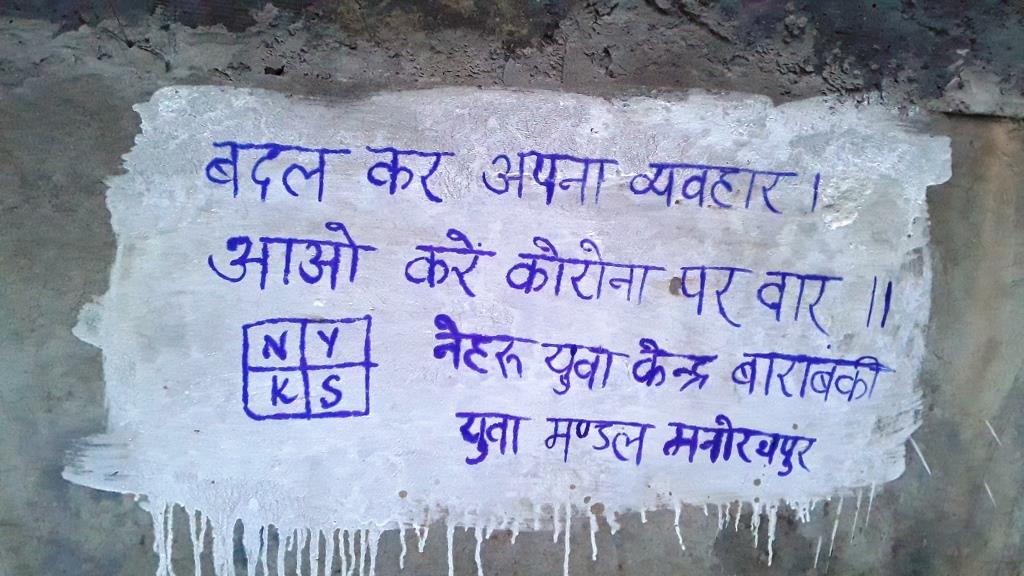 बदल कर अपना व्यवहार।
आओ करें कोरोना पर वार॥
N Y
K S
नेहरू युवा केन्द्र बाराबंकी
युवा मण्डल मनोरथपुर